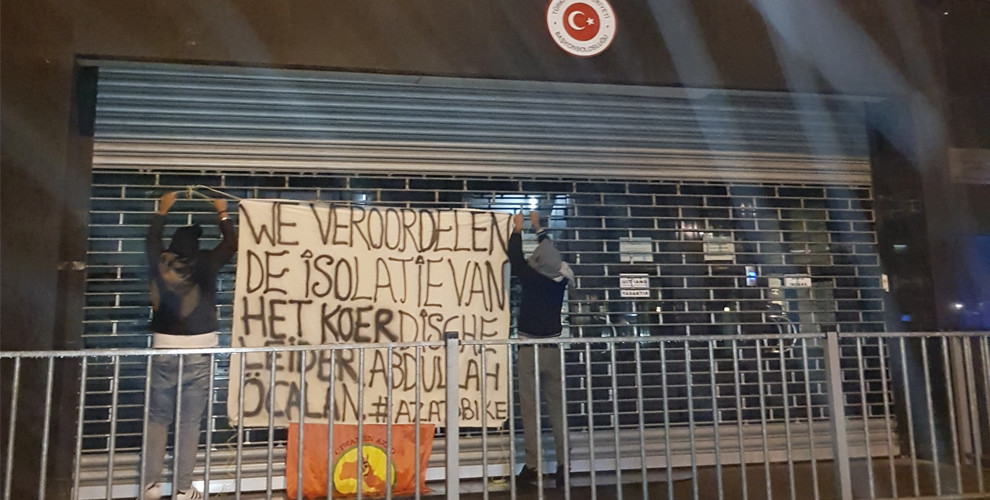 BAŞKONSOLOSLUĞU
WE VEROORDELEN
DE ISOLATIE VAN
HET KOERDISCHE
LEIDER ABDULLAH
ÖCALAN. #AZATBIKE